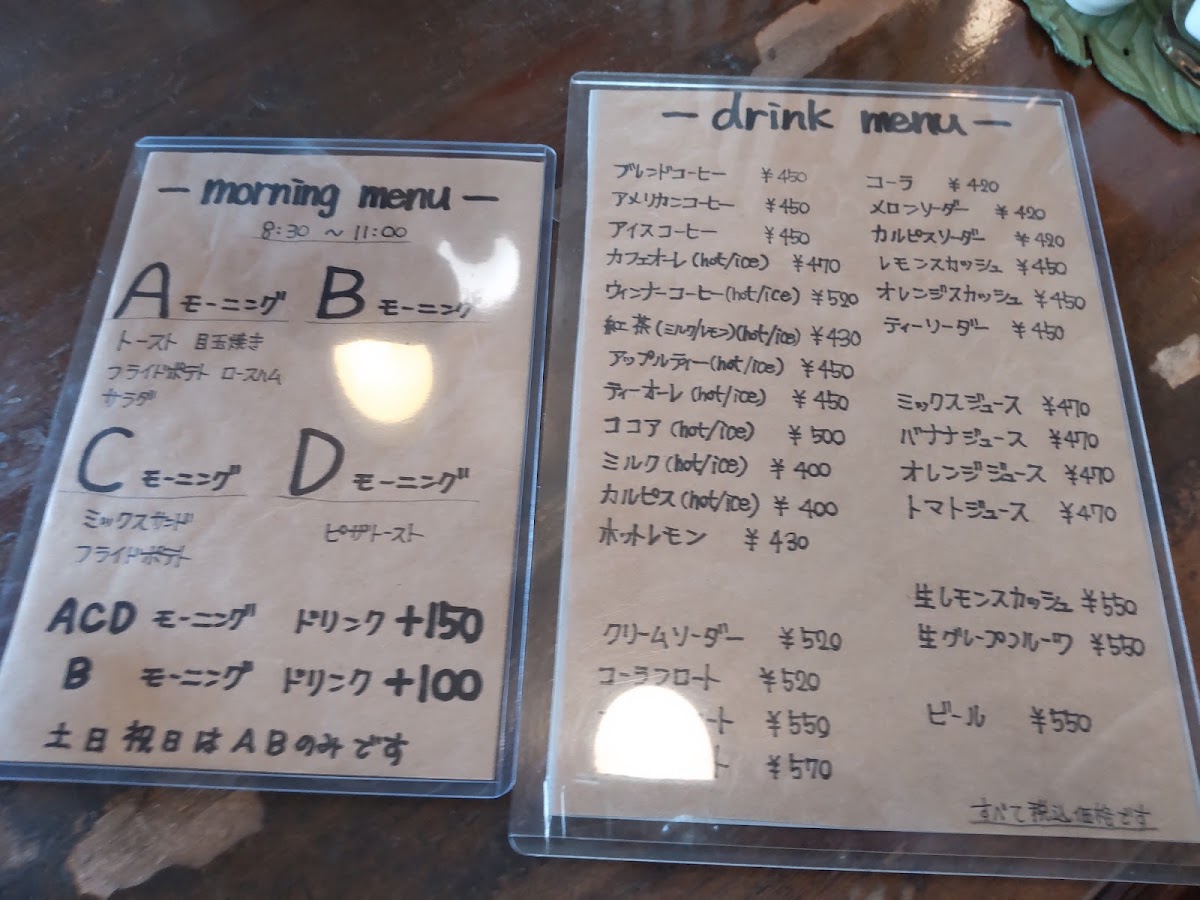 — morning menu —
8:30 ～ 11:00
A モーニング
トースト 目玉焼き
フライドポテト ロースハム
サラダ
B モーニング
C モーニング
ミックスサンド
フライドポテト
D モーニング
ピザトースト
ACD モーニング ドリンク +150
B モーニング ドリンク +100
土日祝日はABのみです
— drink menu —
ブレンドコーヒー ¥450
アメリカンコーヒー ¥450
アイスコーヒー ¥450
カフェオーレ (hot/ice) ¥470
ウィンナーコーヒー (hot/ice) ¥520
紅茶 (ミルク/レモン) (hot/ice) ¥430
アップルティー (hot/ice) ¥450
ティーオーレ (hot/ice) ¥450
ココア (hot/ice) ¥500
ミルク (hot/ice) ¥400
カルピス (hot/ice) ¥400
ホットレモン ¥430
クリームソーダー ¥520
コーラフロート ¥520
ート ¥550
ト ¥570
コーラ ¥420
メロンソーダー ¥420
カルピスソーダー ¥420
レモンスカッシュ ¥450
オレンジスカッシュ ¥450
ティーソーダー ¥450
ミックスジュース ¥470
バナナジュース ¥470
オレンジジュース ¥470
トマトジュース ¥470
生レモンスカッシュ ¥550
生グレープフルーツ ¥550
ビール ¥550
すべて税込価格です